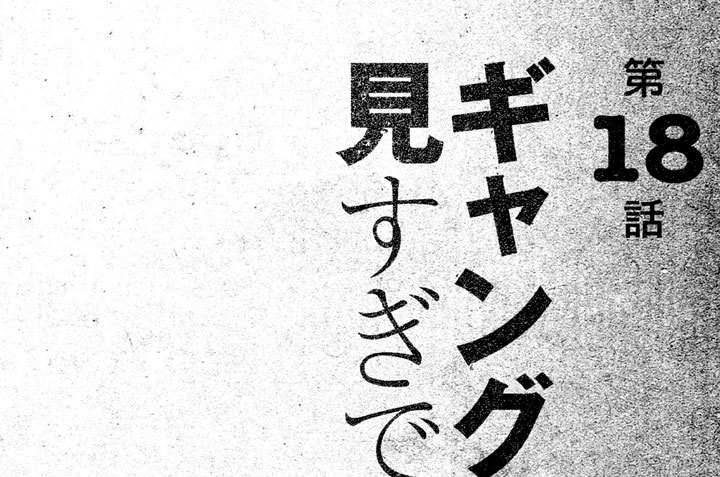 第18話
ギャング
見すぎで